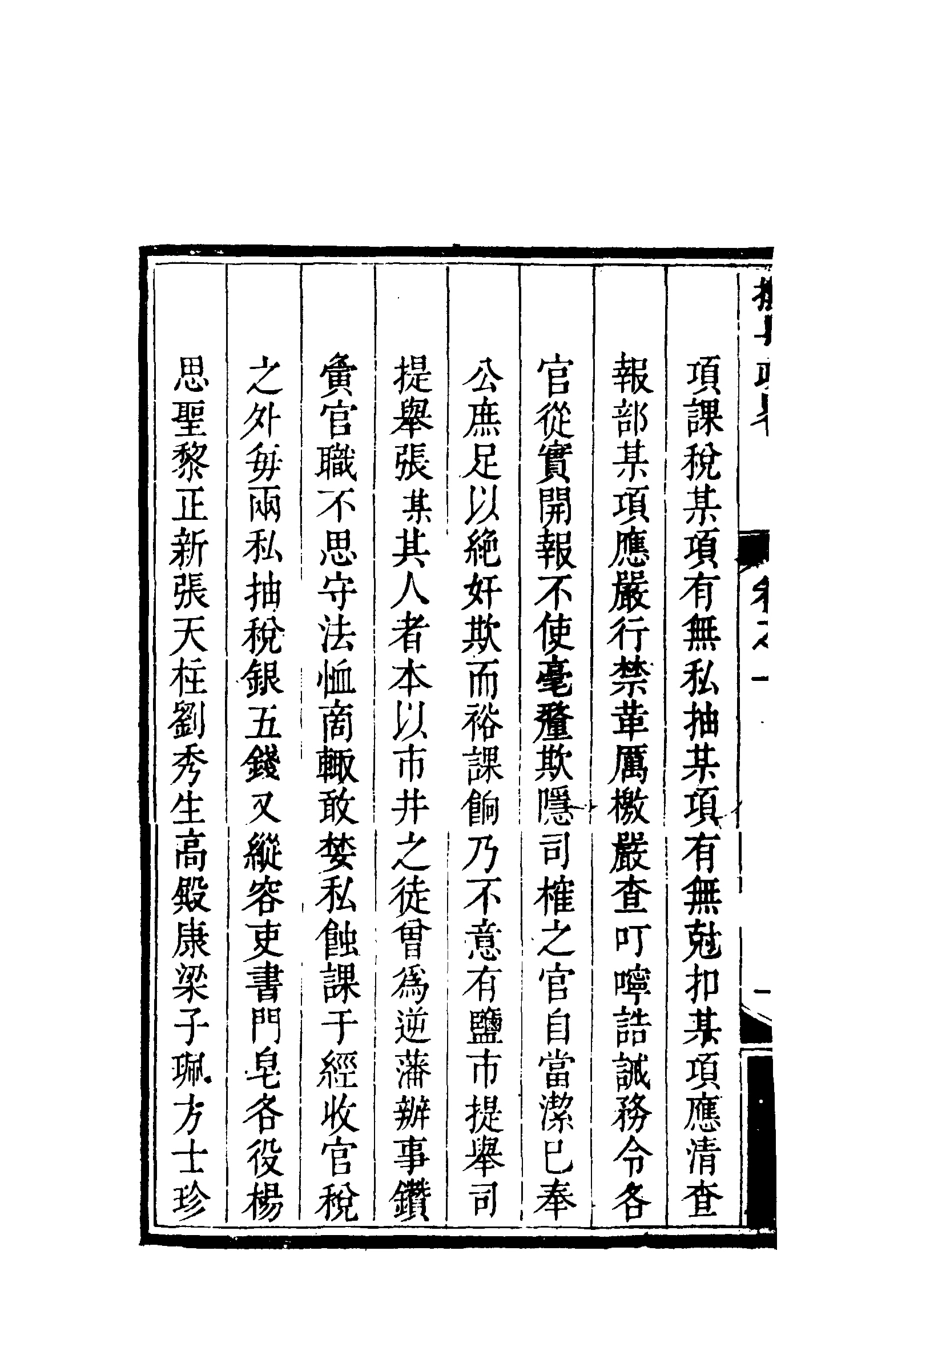 項課稅某項有無私抽某項有無尅扣某項應清查
報部某項應嚴行禁革厲檄嚴查叮嚀誥誡務令各
官從實開報不使毫釐欺隱司榷之官自當潔已奉
公庶足以絶奸欺而裕課餉乃不意有鹽市提舉司
提舉張某其人者本以市井之徒曾爲逆藩辦事鑽
夤官職不思守法恤商輙敢婪私蝕課于經收官稅
之外每兩私抽稅銀五錢又縱容吏書門皂各役楊
思聖黎正新張天柱劉秀生高殿康梁子珮方士珍